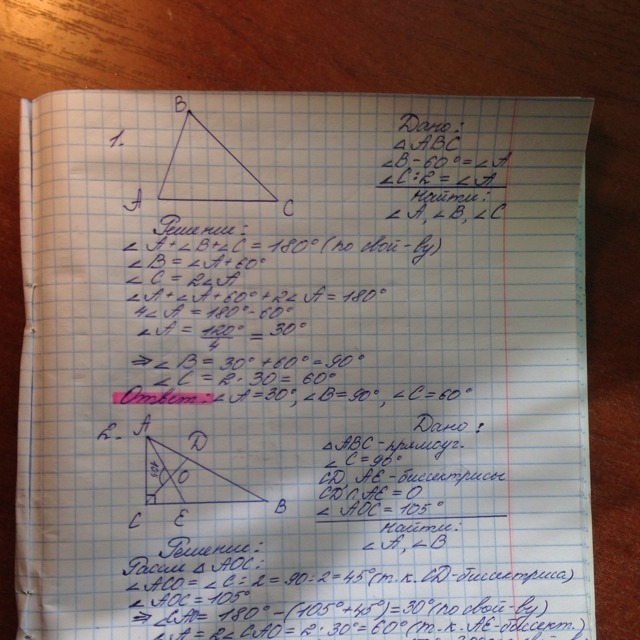 1.
B
A
C
Дано:
△ABC
∠B-60°=∠A
∠C:2=∠A
Найти:
∠A, ∠B, ∠C
Решение:
∠A+∠B+∠C=180° (по свой-ву)
∠B=∠A+60°
∠C=2∠A
∠A+∠A+60°+2∠A=180°
4∠A=180°-60°
∠A=120°/4=30°
⇒∠B=30°+60°=90°
∠C=2·30=60°
Ответ: ∠A=30°, ∠B=90°, ∠C=60°
2.
A
D
O
C
E
B
Дано:
△ABC-прямоуг.
∠C=90°
CD, AE-биссектрисы
CD∩AE=O
∠AOC=105°
Найти:
∠A, ∠B
Решение:
Рассм △AOC:
∠ACO=∠C:2=90:2=45° (т.к. CD-биссектриса)
∠AOC=105°
⇒∠A=180°-(105°+45°)=30° (по свой-ву)
∠A=2∠CAO=2·30°=60° (т.к. AE-биссект.)